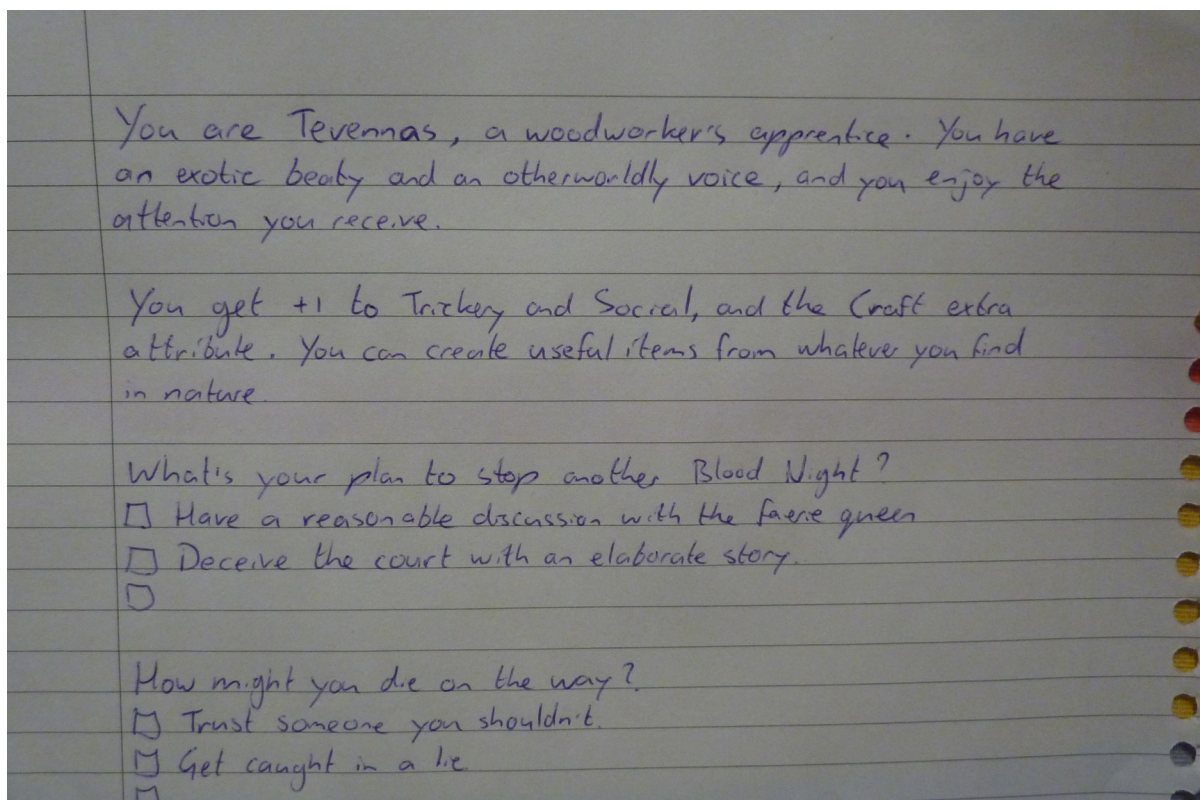 You are Tevennas, a woodworker's apprentice. You have
an exotic beaty and an otherworldly voice, and you enjoy the
attention you receive.
You get +1 to Trickery and Social, and the Craft extra
attribute. You can create useful items from whatever you find
in nature.
What's your plan to stop another Blood Night?
□ Have a reasonable discussion with the faerie queen
□ Deceive the court with an elaborate story.
□
How might you die on the way?
□ Trust someone you shouldn't.
□ Get caught in a lie
□